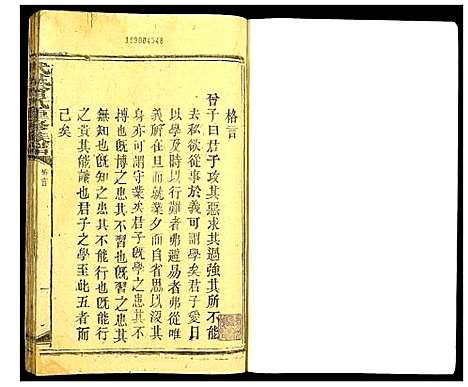 159004348
格言
曾子曰君子攻其惡求其過強其所不能
去私欲從事於義可謂學矣君子愛日
以學及時以行難者弗避易者弗從唯
義所在旦而就業夕而自省思以沒其
身亦可謂守業矣君子旣學之患其不
搏也旣博之患其不習也旣習之患其
無知也旣知之患其不能行也旣能行
之貴其能讓也君子之學至此五者而
己矣
格言
一